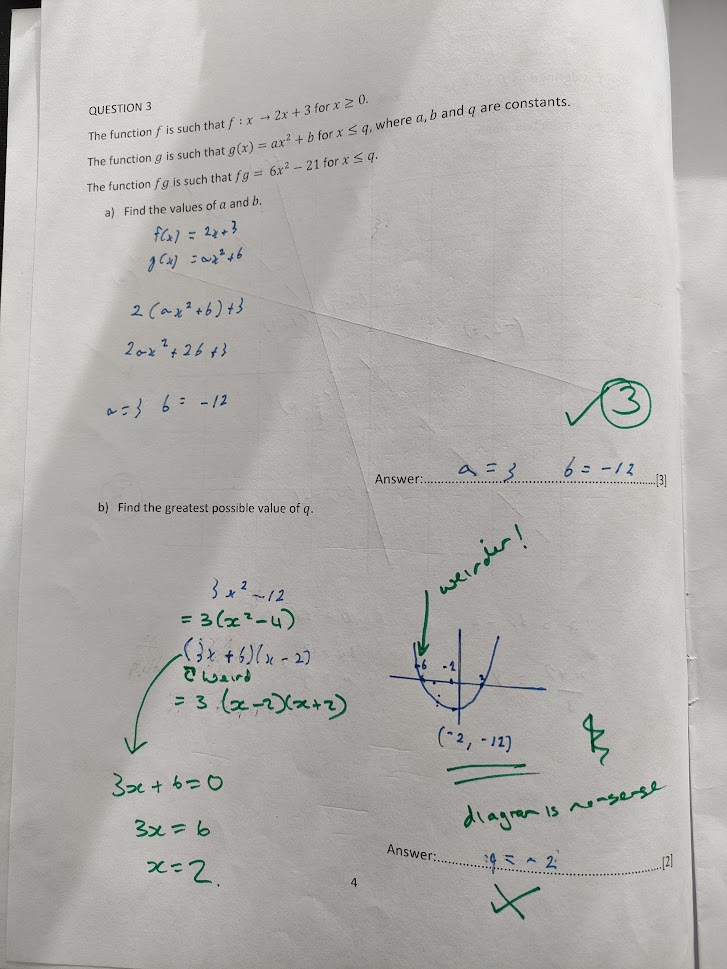 QUESTION 3
The function f is such that f : x → 2x + 3 for x ≥ 0.
The function g is such that g(x) = ax² + b for x ≤ q, where a, b and q are constants.
The function fg is such that fg = 6x² − 21 for x ≤ q.
a) Find the values of a and b.
f(x) = 2x+3
g(x) = ax²+b
2(ax²+b)+3
2ax²+2b+3
a=3 b= -12
✓ 3
Answer:..... a = 3 b = -12 .....[3]
b) Find the greatest possible value of q.
weirder!
3x²-12
= 3(x²-4)
(3x+6)(x-2)
weird
= 3(x-2)(x+2)
-6 -1 2
(-2, -12)
diagram is nonsense
3x + 6 = 0
3x = 6
x = 2.
Answer:..... q = -2 .....[2]
4